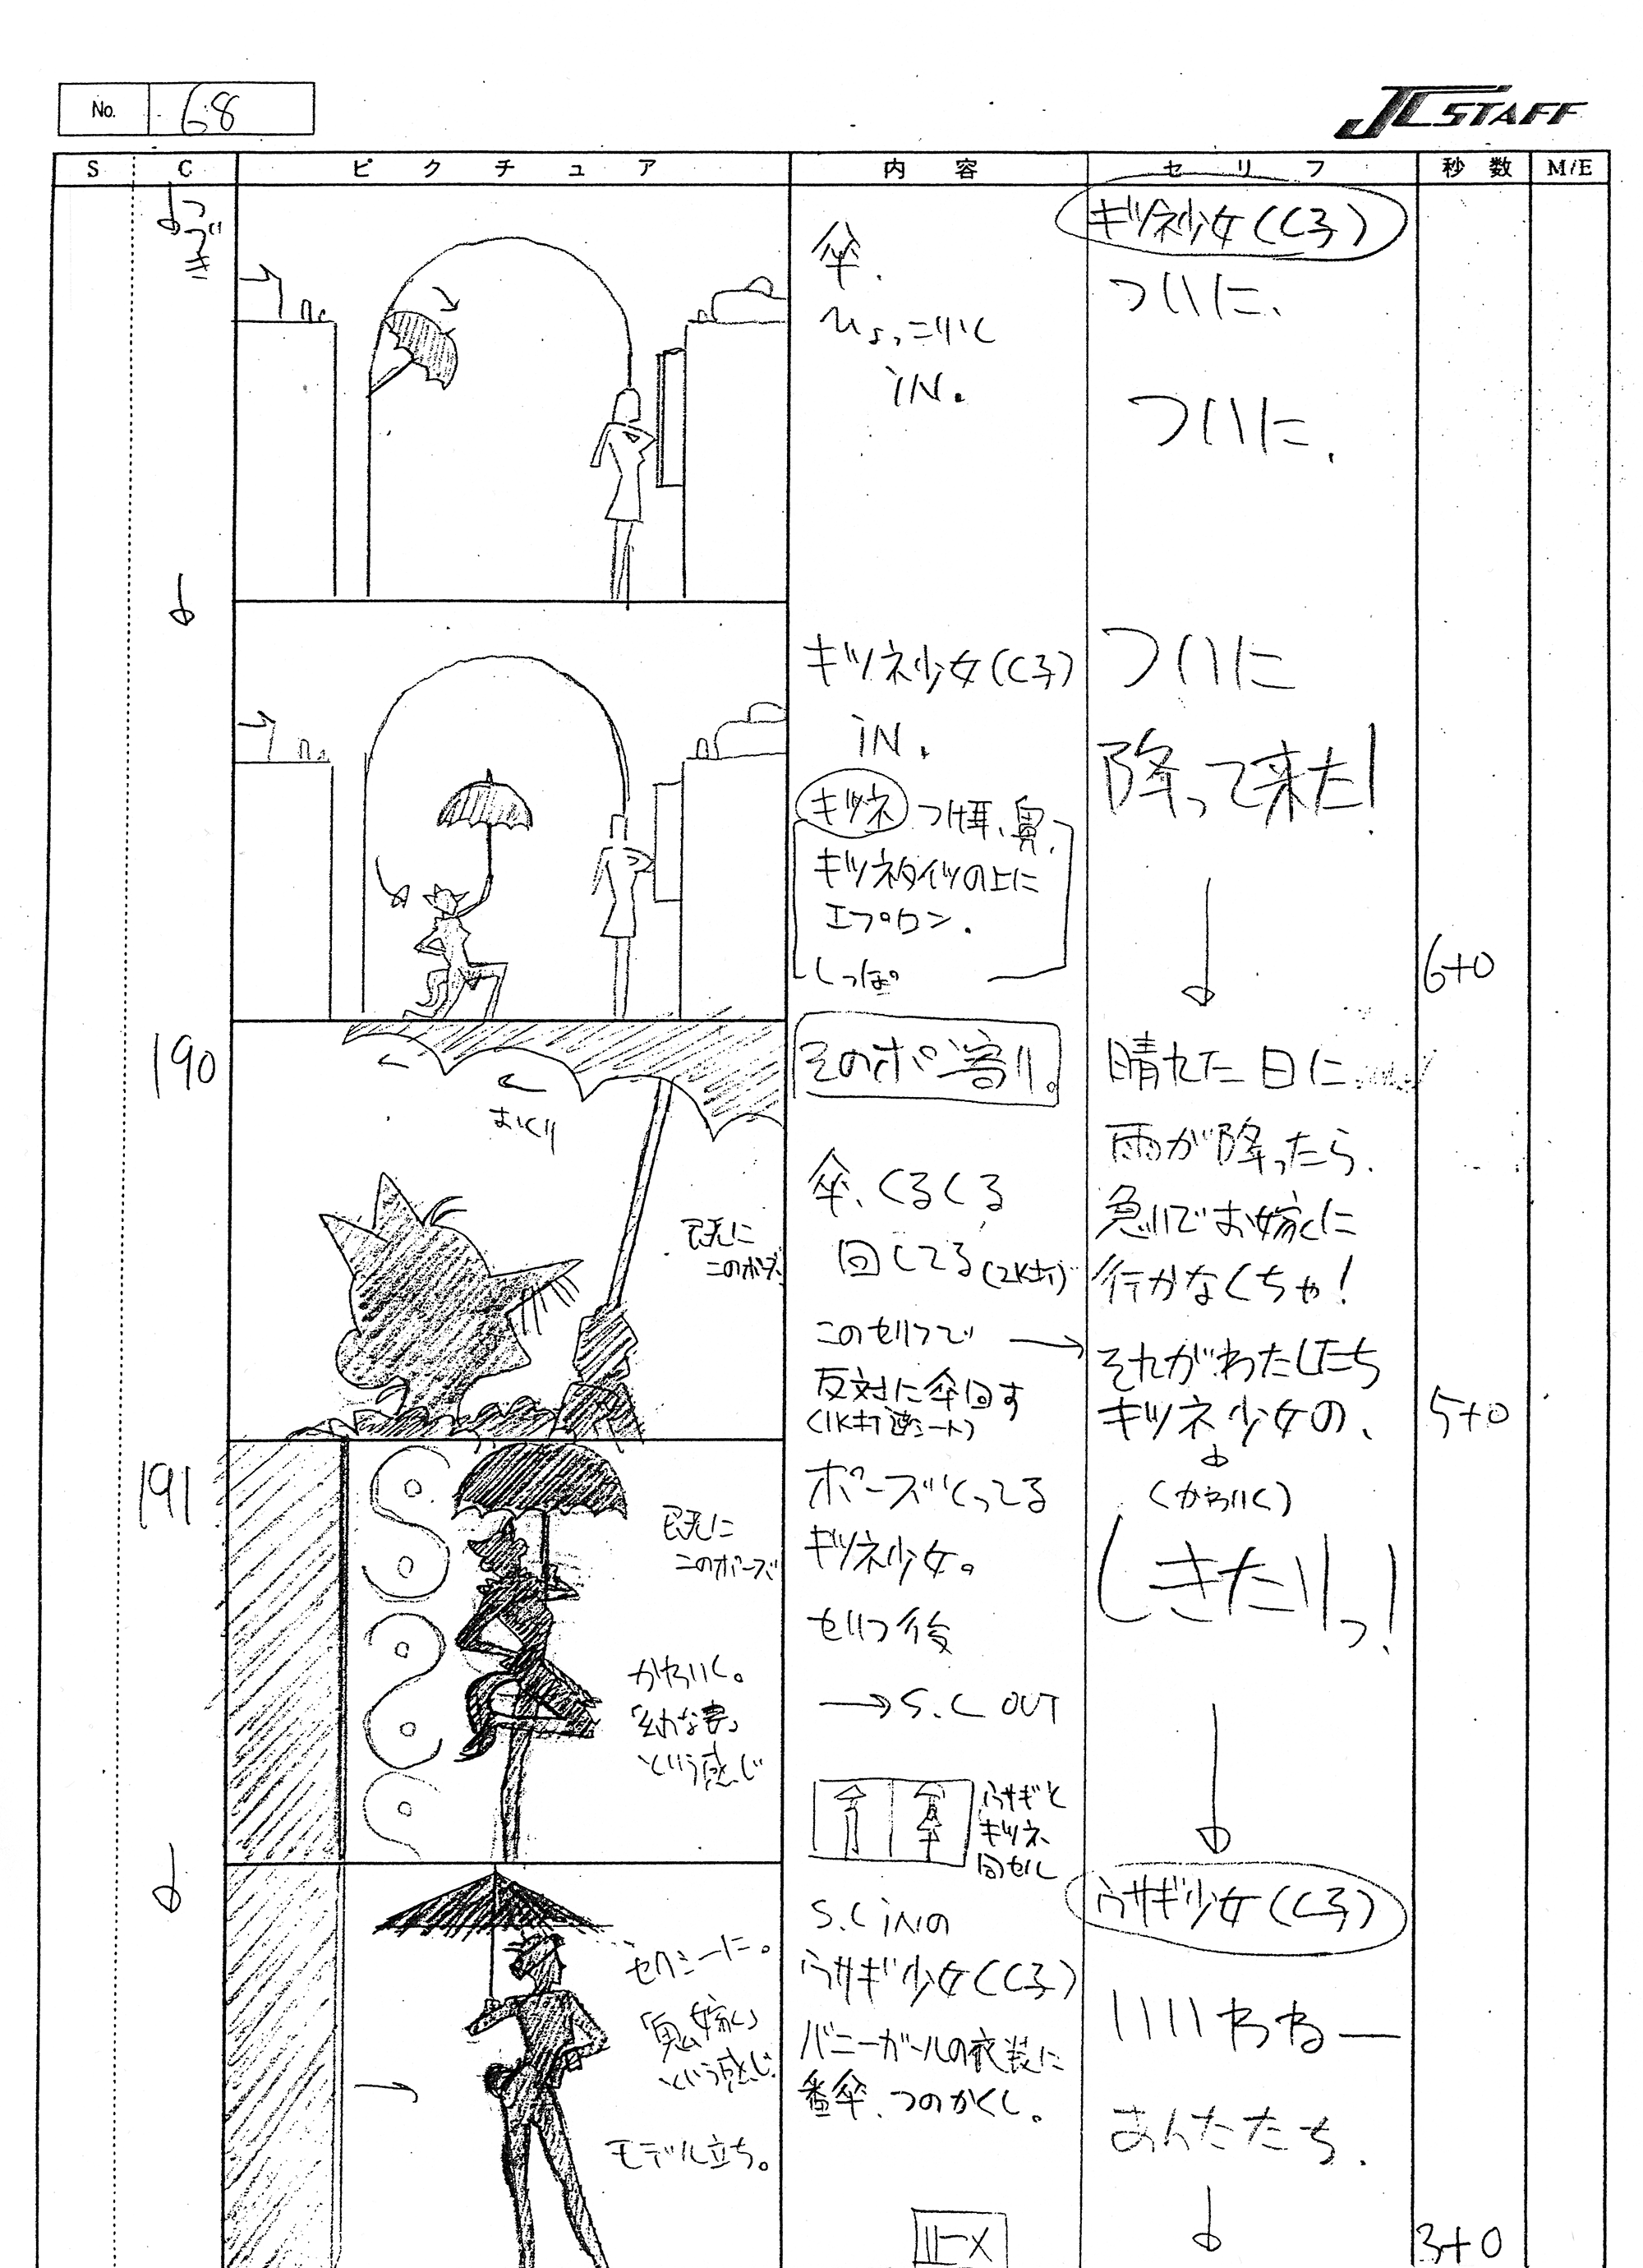 No. 68
JC STAFF
S C ピクチュア 内容 セリフ 秒数 M/E
つづき
傘、
ひょっこりと
iN.
キツネ少女(C子)
ついに、
ついに、
キツネ少女(C子)
iN.
キツネ つけ耳、鼻、
キツネタイツの上に
エプロン.
しっぽ
ついに
降って来た!
6+0
190
まくり
既に
このポーズ
そのポン寄り。
傘、くるくる
回してる(2K打)
このセリフで
反対に傘回す
(1K打
晴れた日に
雨が降ったら、
急いでお嫁に
行かなくちゃ!
それがわたしたち
キツネ少女の、
5+0
191
既に
このポーズ
かわいく。
「幼な妻」
という感じ
ポーズとってる
キツネ少女。
セリフ後
→S.C OUT
ウサギと
キツネ、
同セル
(かわいく)
しきたりっ!
セクシーに。
「鬼嫁」
という感じ
モデル立ち。
S.C iNの
ウサギ少女(C子)
バニーガールの衣装に
番傘、つのかくし。
ウサギ少女(C子)
いいわねー
あんたたち、
3+0